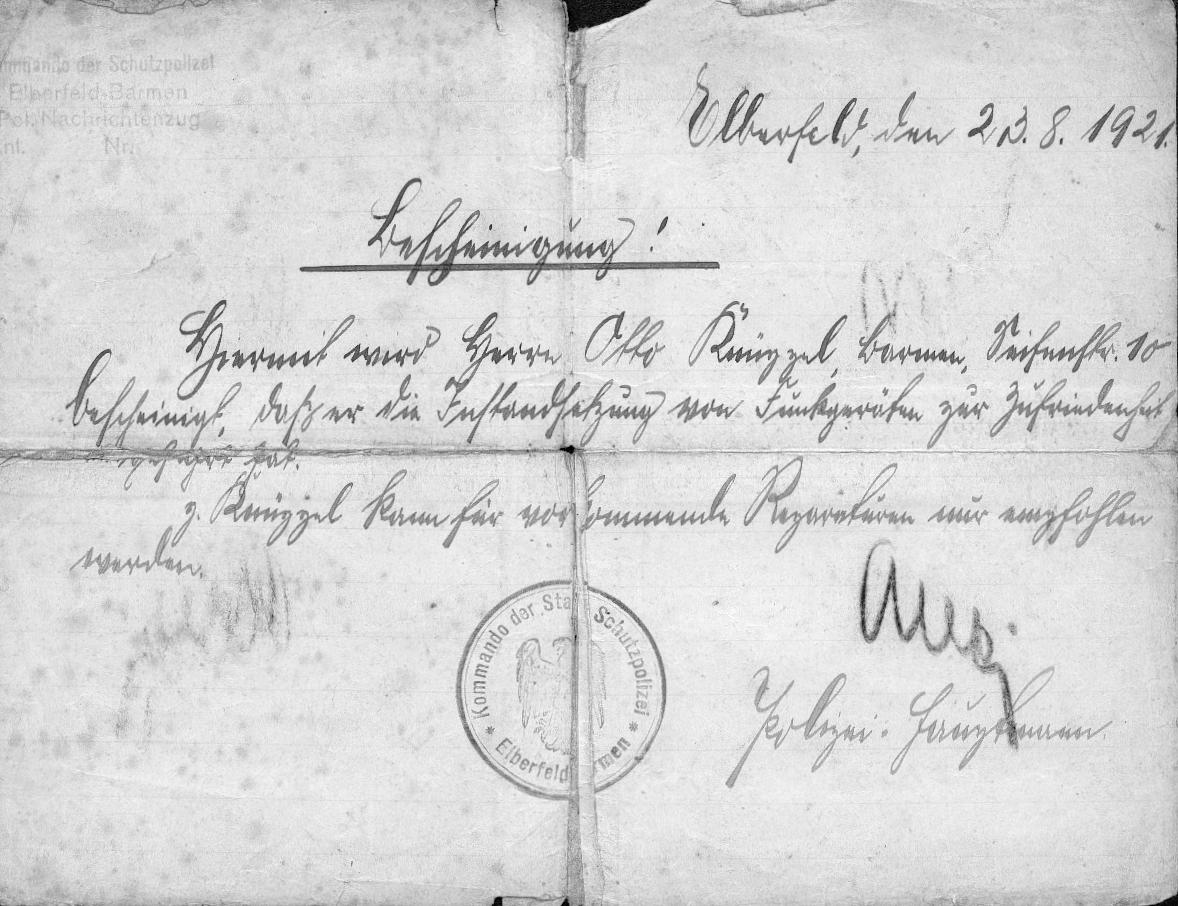 Kommando der Schutzpolizei
Elberfeld-Barmen
Pol. Nachrichtenzug
Nr.
Elberfeld, den 23. 8. 1921.
Bescheinigung!
Hiermit wird Herrn Otto Knüppel, Barmen, Seifenstr. 10
bescheinigt, daß er die Instandsetzung von Funkgeräten zur Zufriedenheit
hat.
H. Knüppel kann für vorkommende Reparaturen nur empfohlen
werden.
Kommando der Schutzpolizei
* Elberfeld Barmen *
Polizei-Hauptmann.